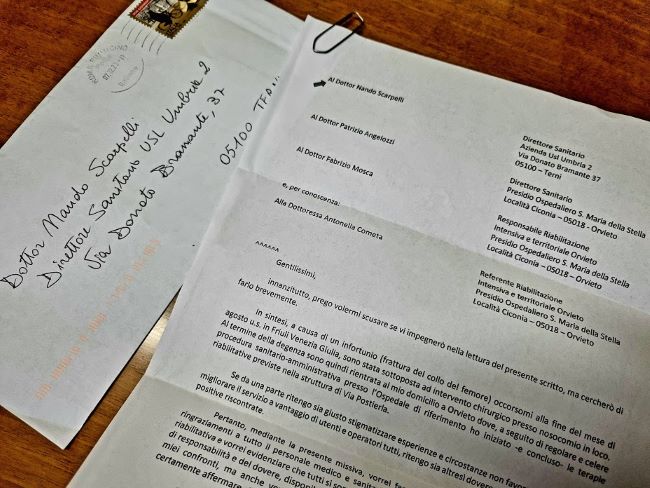 Dottor Nando Scarpelli
Direttore Sanitario USL Umbria 2
Via Donato Bramante, 37
05100
Al Dottor Nando Scarpelli
Direttore Sanitario
Azienda Usl Umbria 2
Via Donato Bramante 37
05100 – Terni
Al Dottor Patrizio Angelozzi
Direttore Sanitario
Presidio Ospedaliero S. Maria della Stella
Località Ciconia – 05018 - Orvieto
Al Dottor Fabrizio Mosca
Responsabile Riabilitazione
Intensiva e territoriale Orvieto
Presidio Ospedaliero S. Maria della Stella
Località Ciconia – 05018 - Orvieto
e, per conoscenza:
Alla Dottoressa Antonella Comota
Referente Riabilitazione
Intensiva e territoriale Orvieto
Presidio Ospedaliero S. Maria della Stella
Località Ciconia – 05018 - Orvieto
^^^^^^
Gentilissimi,
innanzitutto, prego volermi scusare se vi impegnerò nella lettura del presente scritto, ma cercherò di
farlo brevemente.
In sintesi, a causa di un infortunio (frattura del collo del femore) occorsomi alla fine del mese di
agosto u.s. in Friuli Venezia Giulia, sono stata sottoposta ad intervento chirurgico presso nosocomio in loco.
Al termine della degenza sono quindi rientrata al mio domicilio a Orvieto dove, a seguito di regolare e celere
procedura sanitario-amministrativa presso l'Ospedale di riferimento ho iniziato -e concluso- le terapie
riabilitative previste nella struttura di Via Postierla.
Se da una parte ritengo sia giusto stigmatizzare esperienze e circostanze non favor
migliorare il servizio a vantaggio di utenti e operatori tutti, ritengo sia altresì dovero
positive riscontrate.
Pertanto, mediante la presente missiva, vorrei
ringraziamenti a tutto il personale medico e sanita
riabilitativa e vorrei evidenziare che tutti si so
di responsabilità e del dovere, dispon
miei confronti, ma anche v
certamente affermare